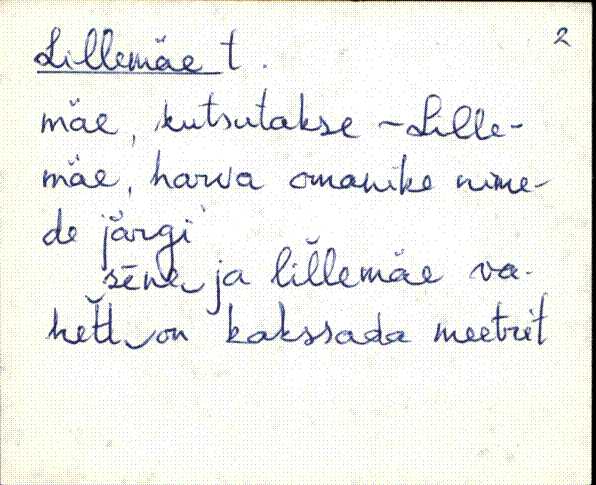 2
Lillemäe t.
mäe, kutsutakse ~ Lille-
mäe, harva omanike nime-
de järgi
sēne‿ja lil̆lemäe va-
hel̆t‿on kakssada meetrit